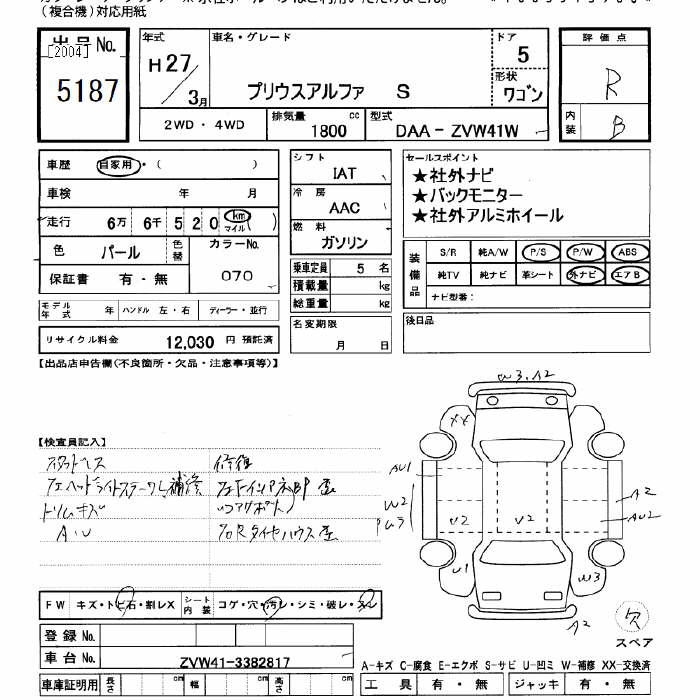 (複合機)対応用紙
出品No.
[2004]
5187
年式
H27/3月
車名・グレード
プリウスアルファ S
ドア
5
形状
ワゴン
2WD・4WD
排気量 cc
1800
型式
DAA-ZVW41W
評価点
R
内装
B
車歴 自家用・( )
車検 年 月
走行 6万 6千 5 2 0 km マイル ( )
色 パール
色替
カラーNo.
070
保証書 有・無
モデル年式 年 ハンドル 左・右 ディーラー・並行
リサイクル料金 12,030 円 預託済
シフト
IAT
冷房
AAC
燃料
ガソリン
乗車定員 5 名
積載量 kg
総重量 kg
名変期限
月 日
セールスポイント
★社外ナビ
★バックモニター
★社外アルミホイール
装備品
S/R 純A/W P/S P/W ABS
純TV 純ナビ 革シート 外ナビ エアB
ナビ型番:
後日品
【出品店申告欄(不良箇所・欠品・注意事項等)】
【検査員記入】
スタッドレス
左ヘッドライトステーワレ補修
トリムキズ
A・U
修復
右Rタイヤハウス歪
W3, A2
XX
AU1
W2
U2
V2
A2
AU2
U1
W3
A2
欠
スペア
FW キズ・トビ石・割レX
シート内装 コゲ・穴・汚レ・シミ・破レ・スレ
登録No.
車台No.
ZVW41-3382817
車庫証明用 長さ cm 幅 cm 高さ cm
A-キズ C-腐食 E-エクボ S-サビ U-凹ミ W-補修 XX-交換済
工具 有・無 ジャッキ 有・無